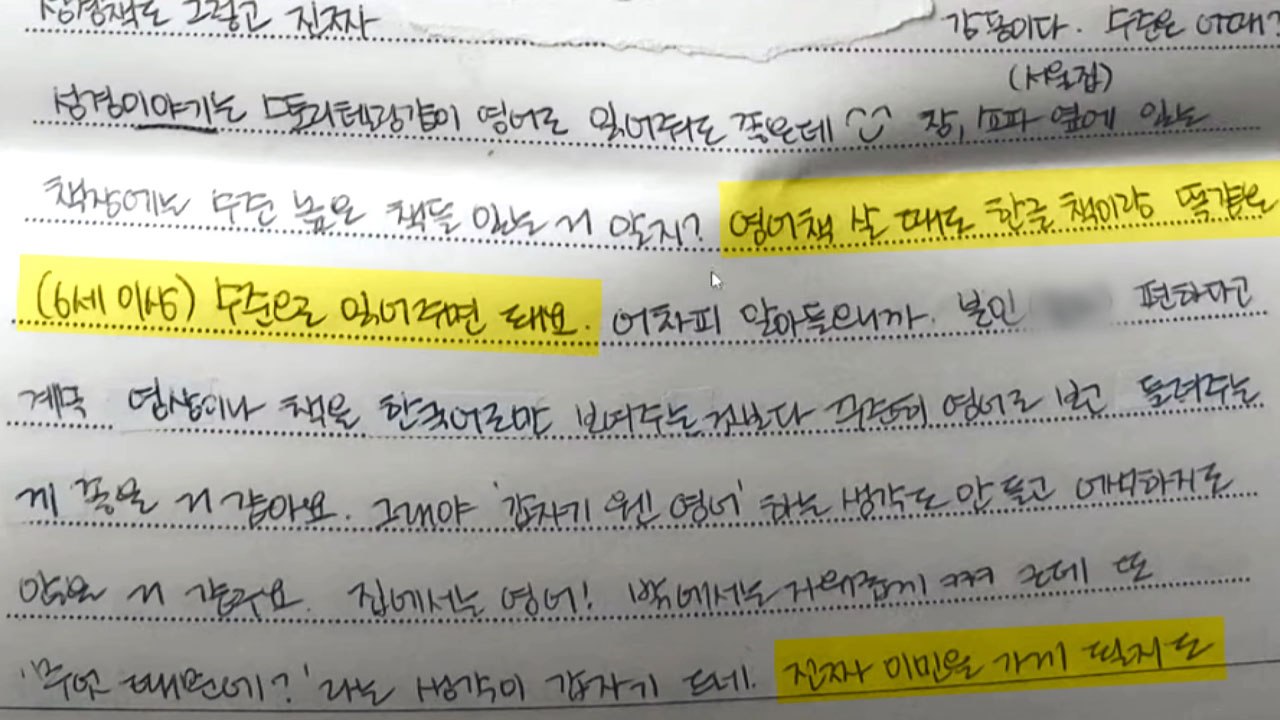 성경책도 그렇고 진짜 감동이다. 수준은 어때?
(서울집)
성경이야기는 스토리텔링같이 영어로 읽어줘도 좋은데 장, 소파 옆에 있는
책장에는 수준 높은 책들 있는 거 알지? 영어책 살 때도 한글 책이랑 똑같은
(6세 이상) 수준으로 읽어주면 돼요. 어차피 알아들으니까. 본인 편하다고
계속 영상이나 책을 한국어로만 보여주는 것보다 꾸준히 영어로 보고 들려주는
게 좋을 거 같아요. 그래야 '갑자기 웬 영어' 하는 생각도 안 들고 어색하지도
않을 거 같구요. 집에서는 영어! 밖에서는 자연스럽게 근데 또
'무엇 때문에?' 라는 생각이 갑자기 드네. 진짜 이민을 가게 될지도